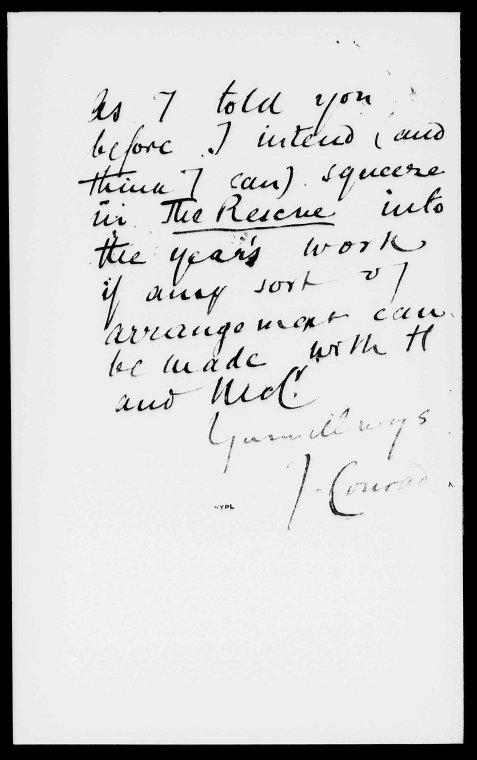 As I told you
before I intend (and
think I can) squeeze
in The Rescue into
the year's work
if any sort of
arrangement can
be made with H
and McC.
Yours always
J. Conrad.
NYPL